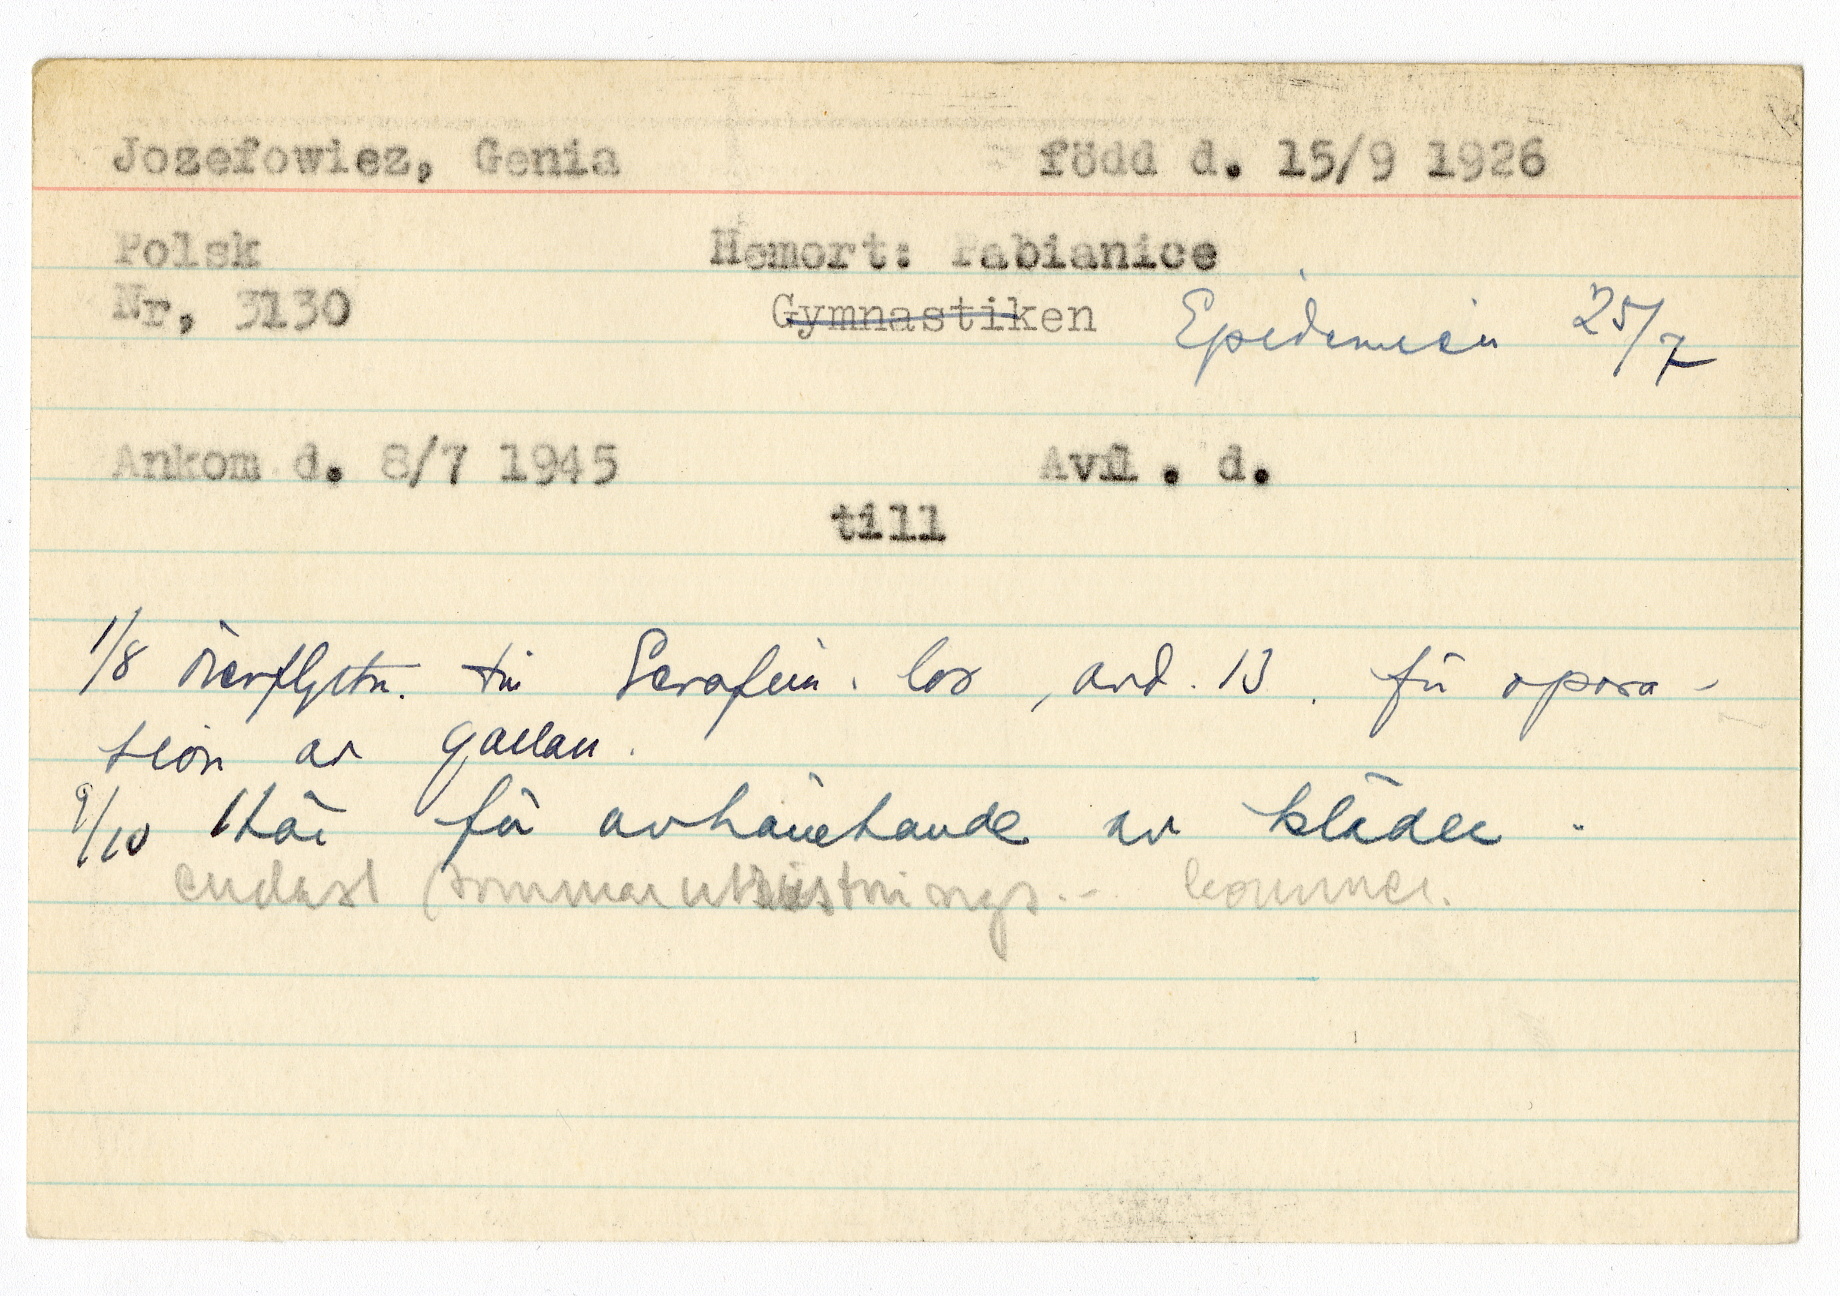 Jozefowiez, Genia född d. 15/9 1926
Polsk Hemort: Pabianice
Nr, 3130 Gymnastiken Epidemien 25/7
Ankom d. 8/7 1945 Avfl. d.
till
1/8 överflyttn. till Serafim. las, avd. 13. för opera-
tion av gallan.
9/10 Här för avhämtande av kläder.
endast sommarutrustnings.-